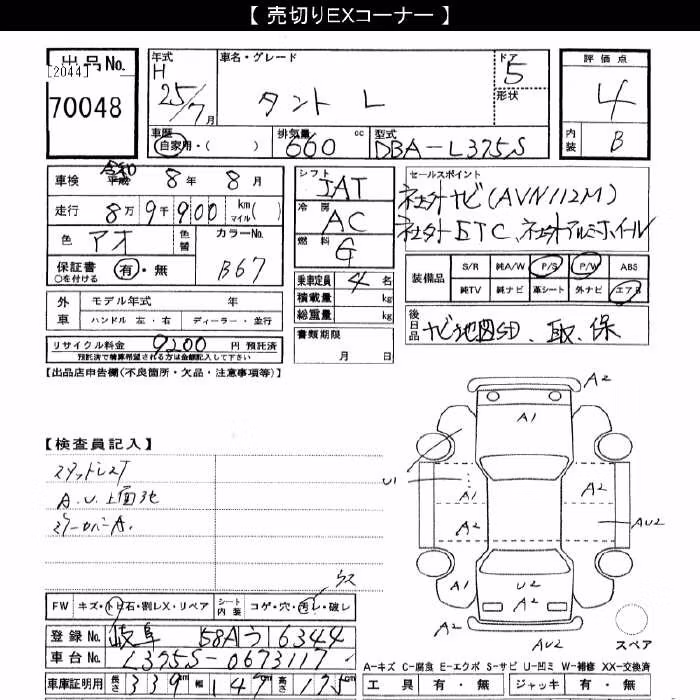 【 売切りEXコーナー 】
出品No.
[2044]
70048
年式
H
25/7月
車名・グレード
タント L
ドア
5
形状
評価点
4
内装
B
車歴
自家用・( )
排気量
660 cc
型式
DBA-L375S
車検 令和 平成 8年 8月
走行 8万 9千 900 km マイル( )
色 アオ 色替
カラーNo. B67
保証書 ○を付ける 有・無
外車
モデル年式 年
ハンドル 左・右 ディーラー・並行
リサイクル料金 9200 円 預託済
預託済で精算希望される方は金額記入して下さい
シフト
IAT
冷房
AC
燃料
G
乗車定員 4 名
積載量 kg
総重量 kg
書類期限
月 日
セールスポイント
社外ナビ(AVN112M)
社外ETC、社外アルミホイール
装備品
S/R 純A/W P/S P/W ABS
純TV 純ナビ 革シート 外ナビ エアB
後日品
ナビ地図SD、取、保
【出品店申告欄(不良箇所・欠品・注意事項等)】
【検査員記入】
スタッドレスT
A.U.上面他
ミラーカバーA.
ウス
A2
A1
U1
A1
A2
A2
AU2
A1
U2
A2
A2
AU2
スペア
FW キズ・トビ石・割レX・リペア
シート内装 コゲ・穴・汚レ・破レ
登録No. 岐阜 58A う 6344
車台No. L375S-0673117
車庫証明用 長さ 339 cm 幅 147 cm 高さ 175 cm
A-キズ C-腐食 E-エクボ S-サビ U-凹ミ W-補修 XX-交換済
工具 有・無 ジャッキ 有・無